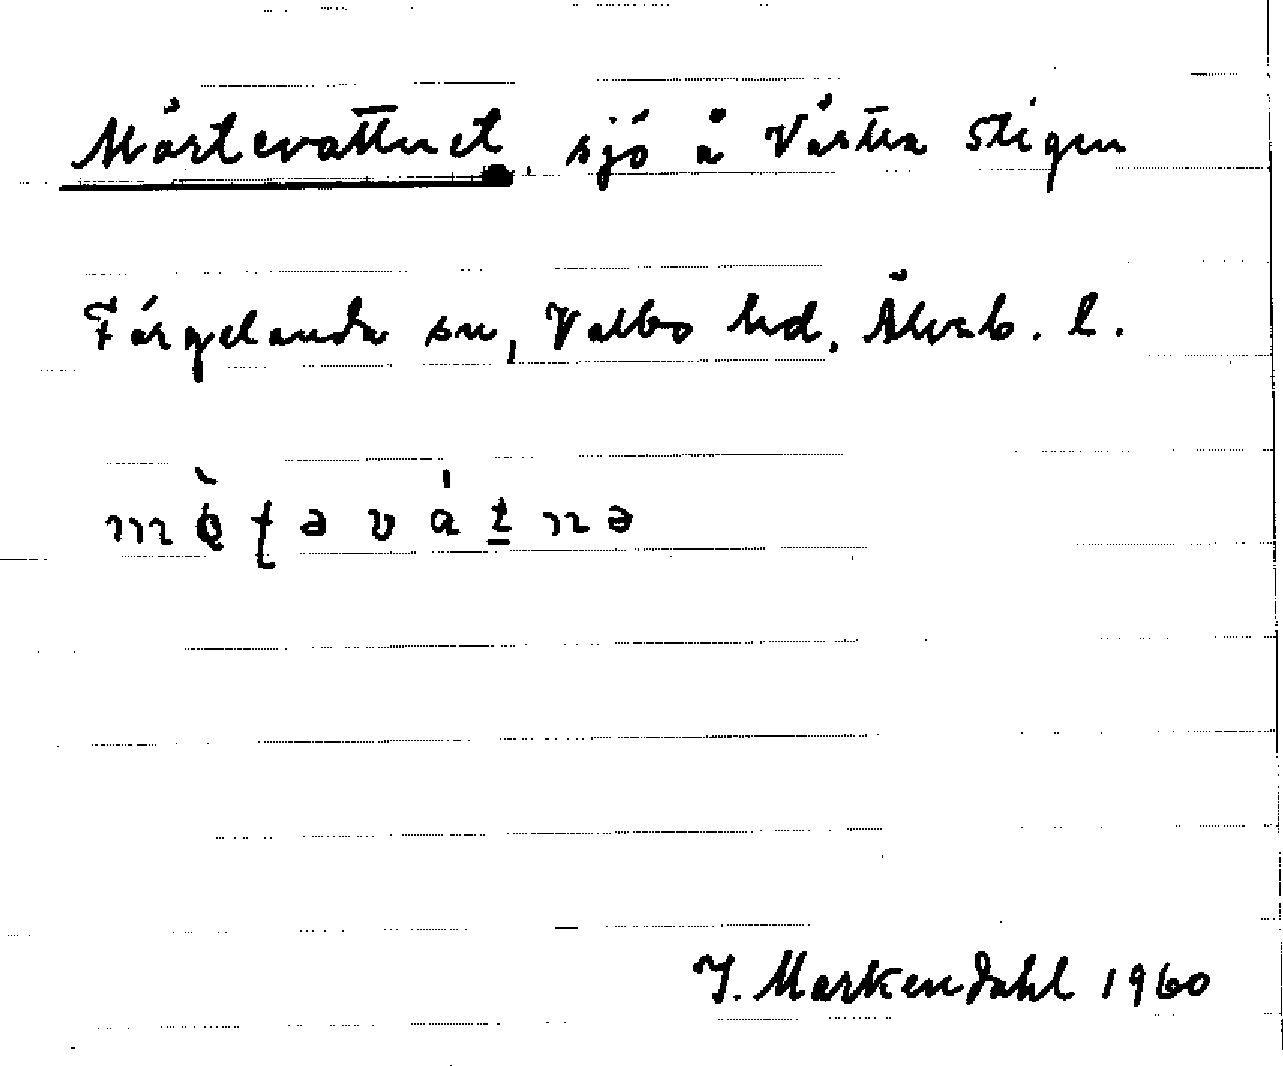 Mörtevattnet, sjö å Västra Stigen
Färgelanda sn, Valbo hd, Älvsb. l.
I. Markendahl 1960